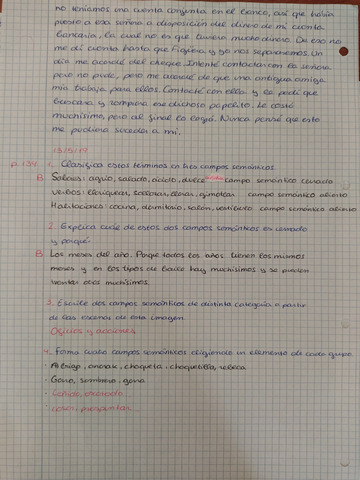 no teníamos una cuenta conjunta en el banco, así que había
puesto a esa señora a disposición del dinero de mi cuenta
bancaria, la cual no es que tuviera mucho dinero. De eso no
me di cuenta hasta que Figüera y yo nos separamos. Un
día me acordé del cheque. Intenté contactar con la señora
pero no pude, pero me acordé de que una antigua amiga
mía trabaja para ellos. Contacté con ella y le pedí que
buscara y rompiera ese dichoso papelito. Le costó
muchísimo, pero al final lo logró. Nunca pensé que esto
me pudiera suceder a mí.
p. 134 1. Clasifica estos términos en tres campos semánticos.
Sabores: agrio, salado, ácido, dulce campo semántico cerrado
Verbos: lloriquear, sollozar, llorar, gimotear campo semántico abierto
Habitaciones: cocina, dormitorio, salón, vestíbulo campo semántico abierto
2. Explica cuál de estos dos campos semánticos es cerrado
y porqué.
Los meses del año. Porque todos los años tienen los mismos
meses y en los tipos de baile hay muchísimos y se pueden
inventar otros muchísimos.
3. Escribe dos campos semánticos de distinta categoría a partir
de las escenas de esta imagen.
Oficios y acciones.
4. Forma cuatro campos semánticos eligiendo un elemento de cada grupo
· Abrigo, anorak, chaqueta, chaquetilla, rebeca
· Gorro, sombrero, gorra